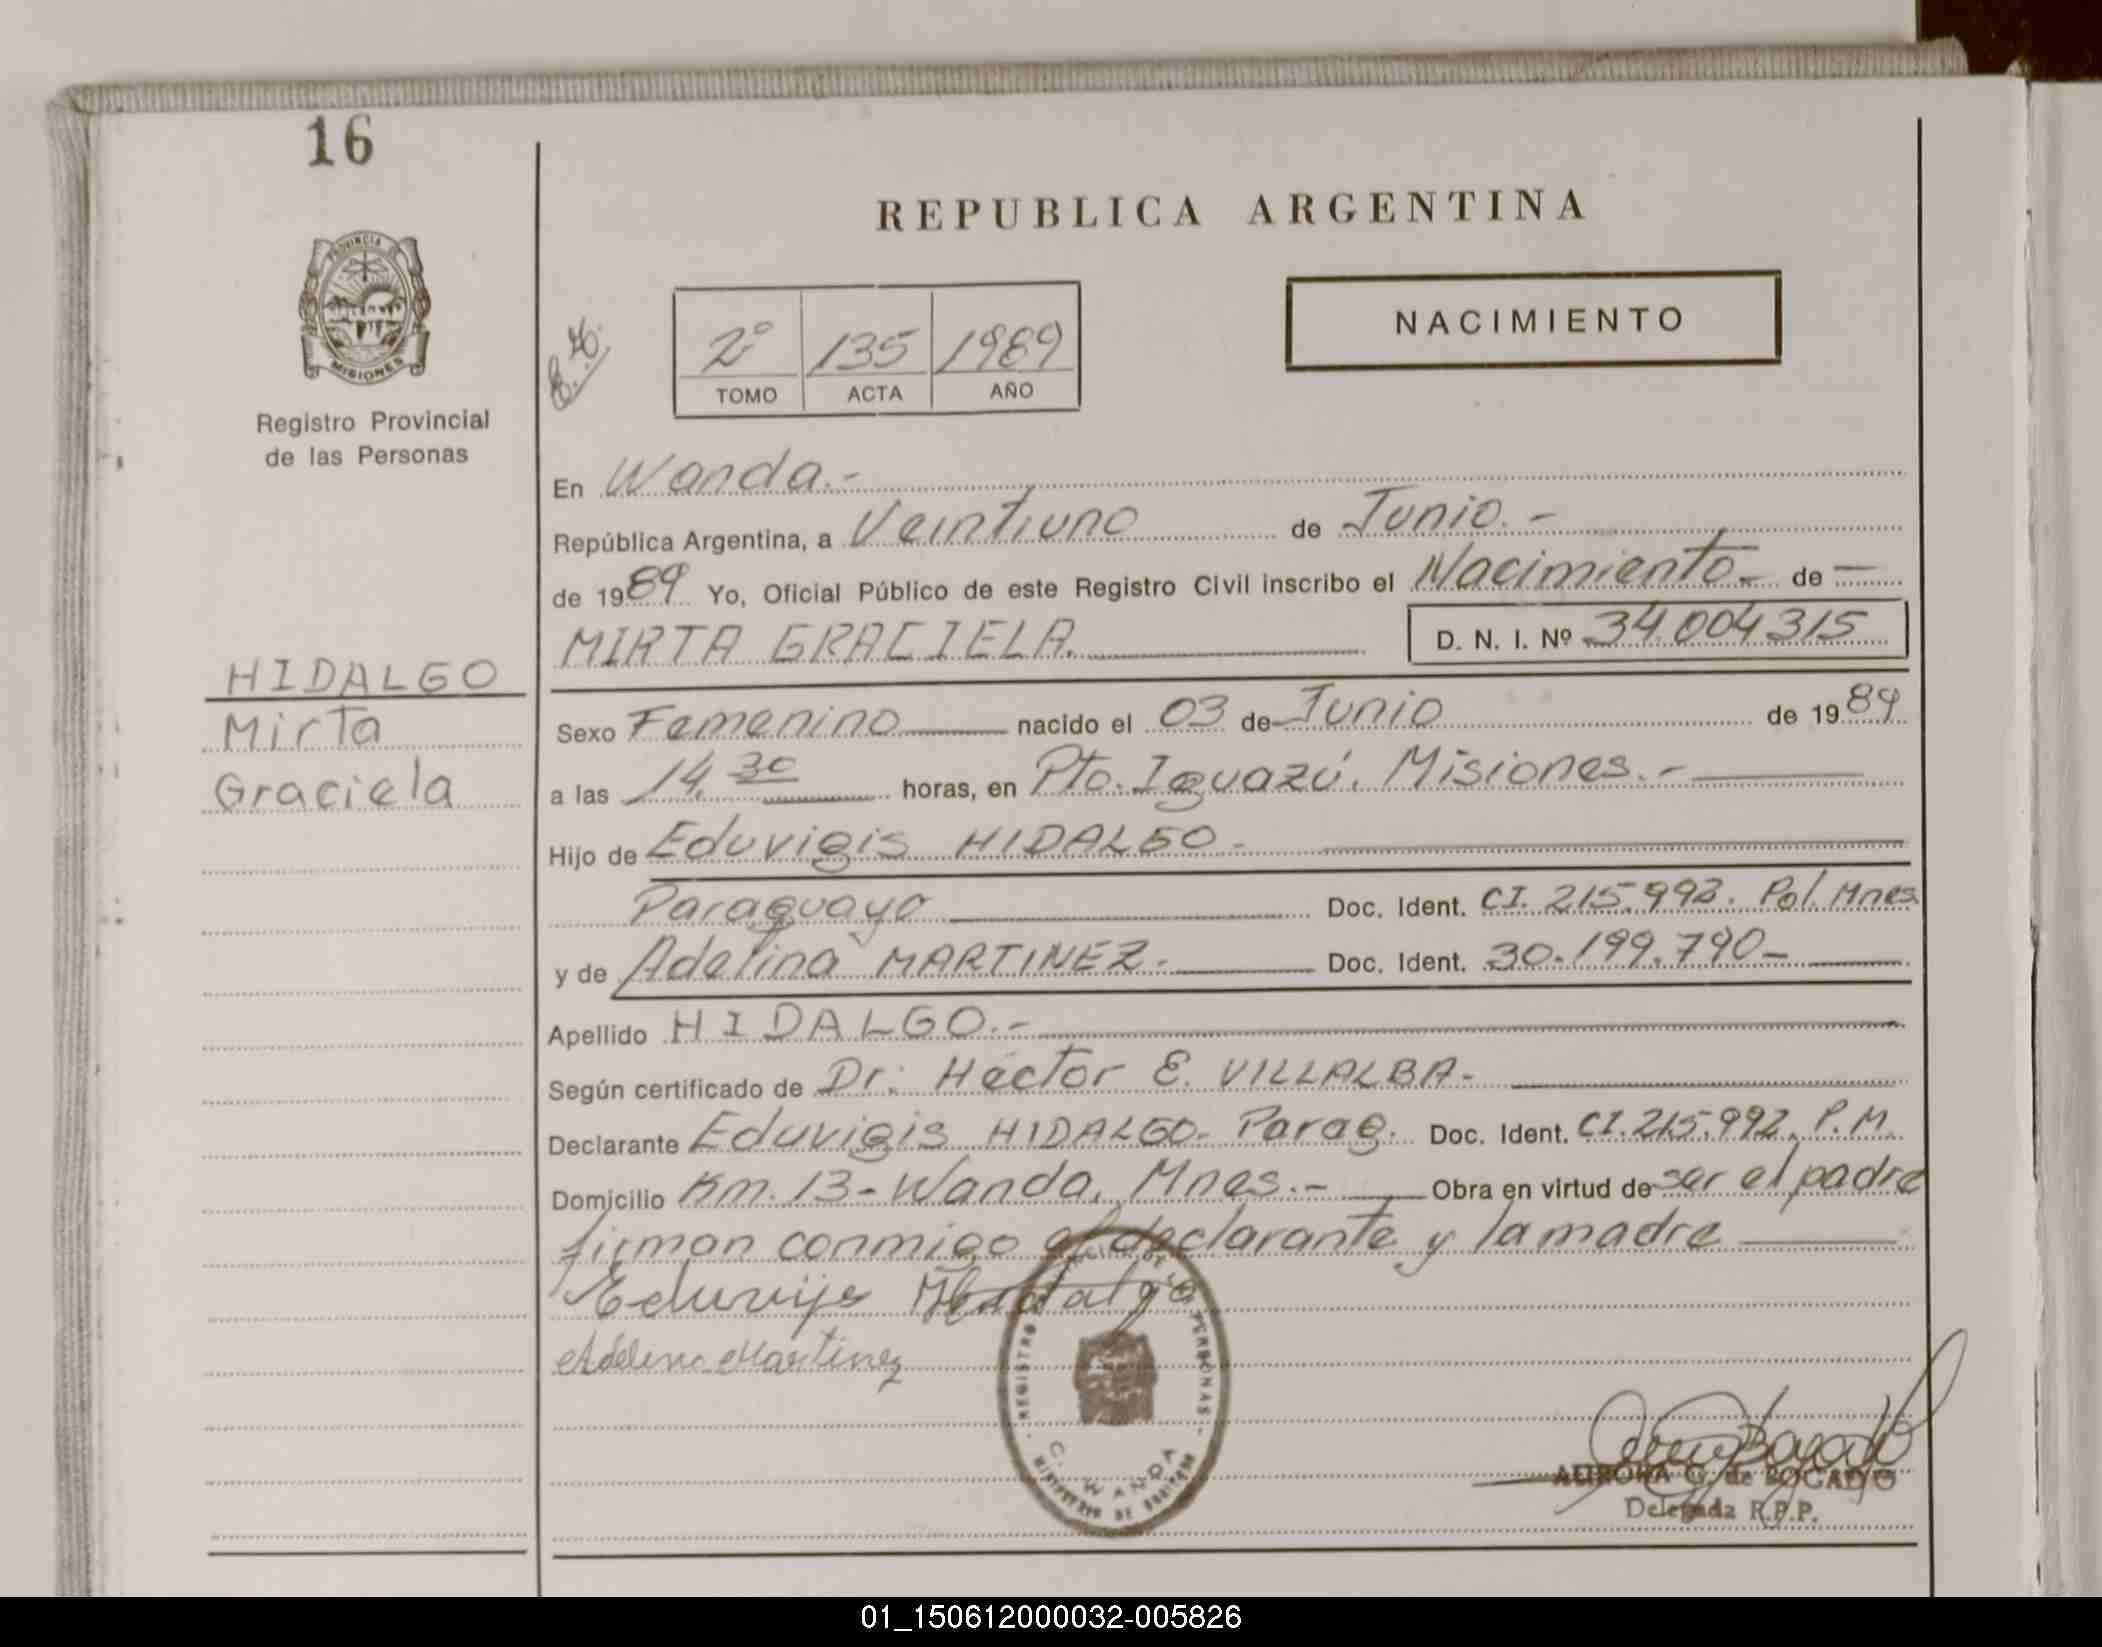 16
REPUBLICA ARGENTINA
PROVINCIA
MISIONES
Registro Provincial
de las Personas
2º 135 1989
TOMO ACTA AÑO
NACIMIENTO
En Wanda.-
República Argentina, a Veintiuno de Junio.-
de 1989 Yo, Oficial Público de este Registro Civil inscribo el Nacimiento- de —
MIRTA GRACIELA. D. N. I. Nº 34.004315
HIDALGO
Mirta
Graciela
Sexo Femenino nacido el 03 de Junio de 1989
a las 14.30 horas, en Pto. Iguazú. Misiones.-
Hijo de Eduvigis HIDALGO-
Paraguayo Doc. Ident. CI. 215.992. Pol. Mnes.
y de Adelina MARTINEZ. Doc. Ident. 30.199.790-
Apellido HIDALGO.-
Según certificado de Dr: Hector E. VILLALBA-
Declarante Eduvigis HIDALGO- Parag. Doc. Ident. CI.215.992. P.M.
Domicilio Km. 13-Wanda, Mnes.- Obra en virtud de ser el padre
firman conmigo el declarante y la madre
Eduvijis Hidalgo
Adelina Martinez
REGISTRO PERSONAS
C. WANDA
AURORA G. de BOGADO
Delegada R.P.P.
01_150612000032-005826